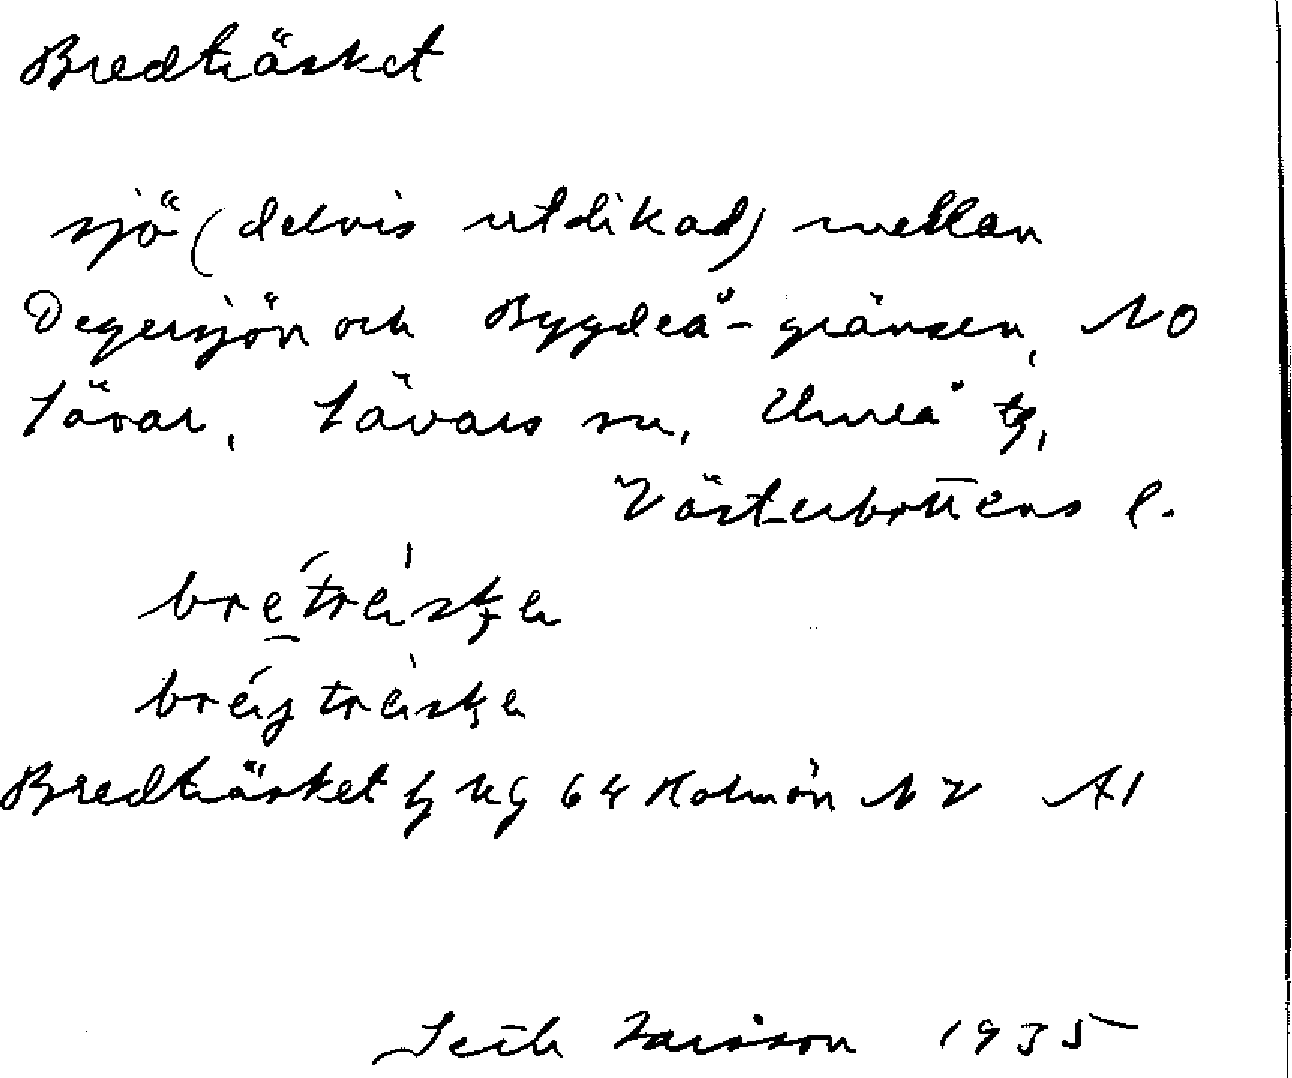 Bredträsket
sjö (delvis utdikad) mellan
Degersjön och Bygdeå-gränsen, NO
Sävar, Sävars sn, Umeå tg,
Västerbottens l.
Bredträsket 64 Holmön NV A1
Seth Larsson 1935